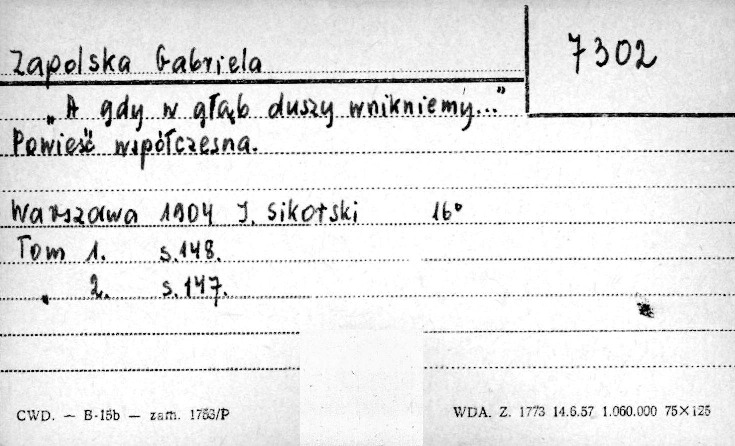 Zapolska Gabriela
7302
„A gdy w głąb duszy wnikniemy..."
Powieść współczesna.
Warszawa 1904 J. Sikorski 16°
Tom 1. s.148.
" 2. s.147.
CWD. — B-15b — zam. 1753/P
WDA. Z. 1773 14.6.57 1.060.000 75×125